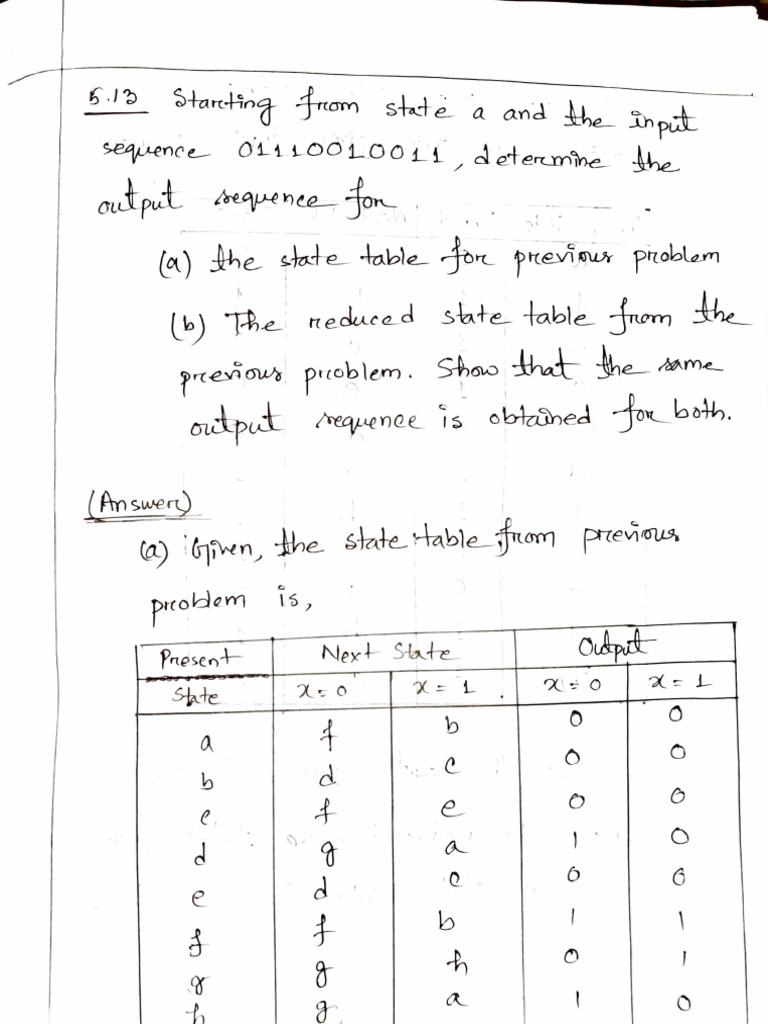 5.13 Starting from state a and the input
sequence 01110010011, determine the
output sequence for
(a) the state table for previous problem
(b) The reduced state table from the
previous problem. Show that the same
output sequence is obtained for both.
(Answer)
(a) Given, the state table from previous
problem is,
Present Next State Output
State x=0 x=1 x=0 x=1
a f b 0 0
b d c 0 0
c f e 0 0
d g a 1 0
e d c 0 0
f f b 1 1
g g h 0 1
h g a 1 0